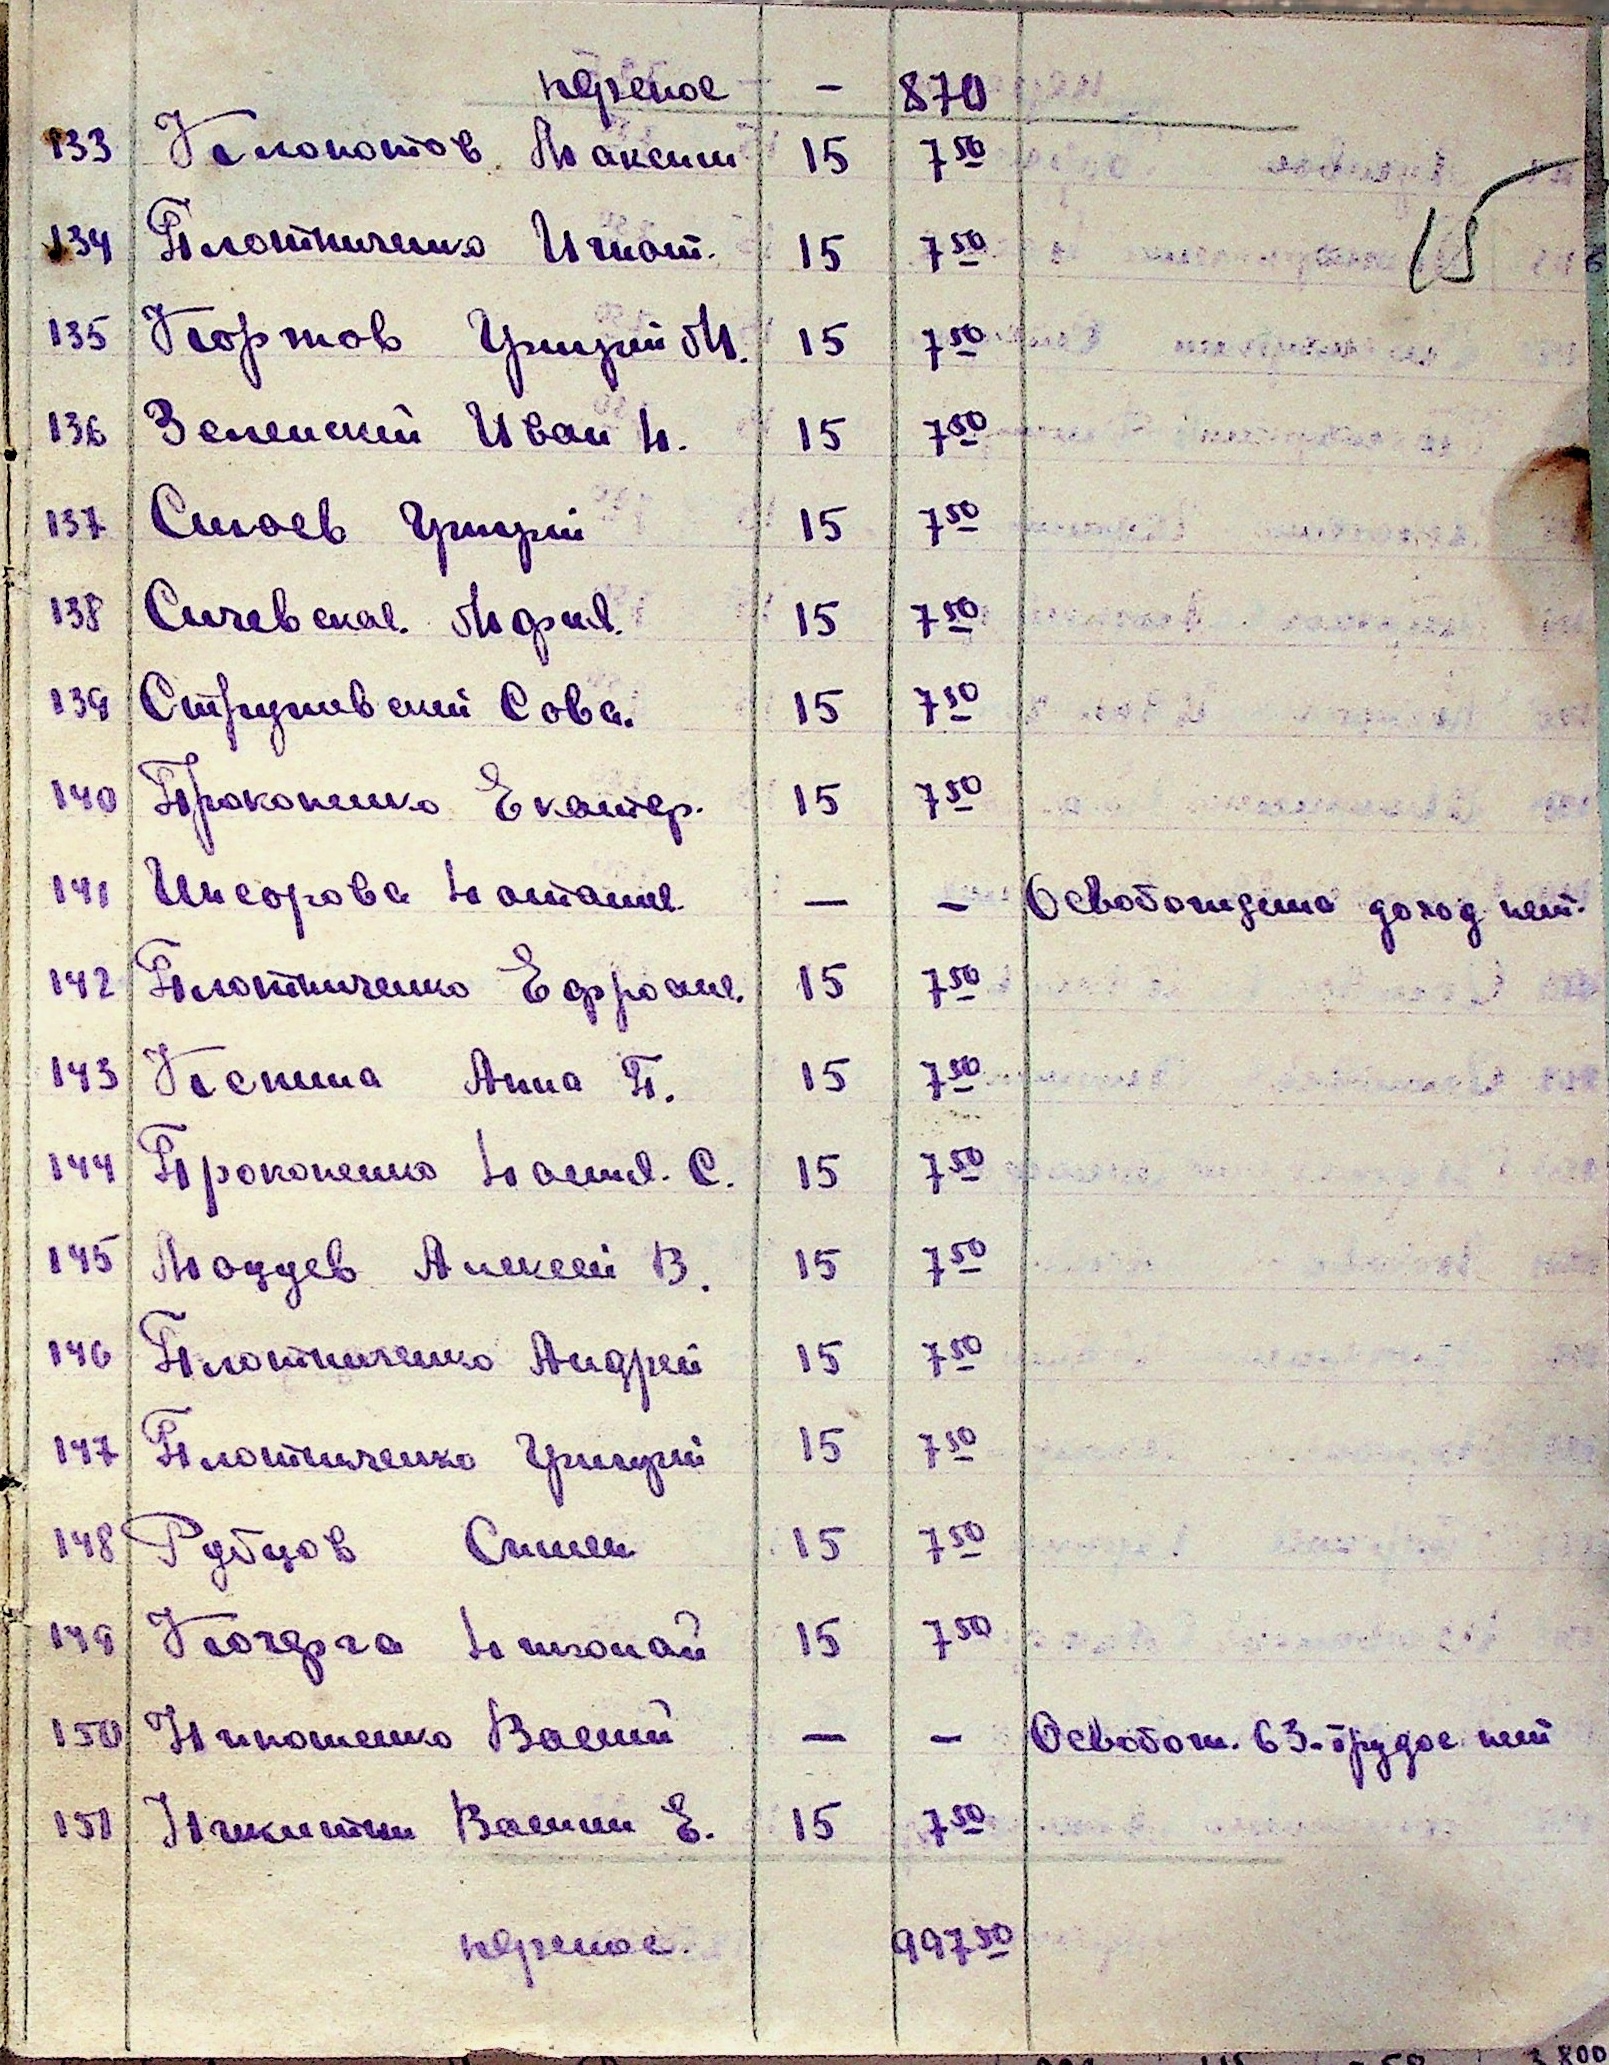 перенос - 870
133 Клокотов Максим 15 7 50
15
134 Плотниченко Игнат. 15 7 50
135 Коржов Григорий М. 15 7 50
136 Зеленский Иван Н. 15 7 50
137 Сизов Григорий 15 7 50
138 Сичевская Мария 15 7 50
139 Струпевский Сова. 15 7 50
140 Прокопенко Екатер. 15 7 50
141 Наталия — - Освобождена доход нет.
142 Плотниченко Ефросин. 15 7 50
143 Кекина Анна П. 15 7 50
144 Прокопенко Натал. С. 15 7 50
145 Алексей В. 15 7 50
146 Плотниченко Андрей 15 7 50
147 Плотниченко Григорий 15 7 50
148 Рубцов Симен 15 7 50
149 Кочерга Николай 15 7 50
150 Василий — - Освобож. 63. трудос нет
151 Никитин Василий Е. 15 7 50
перенос. 997 50